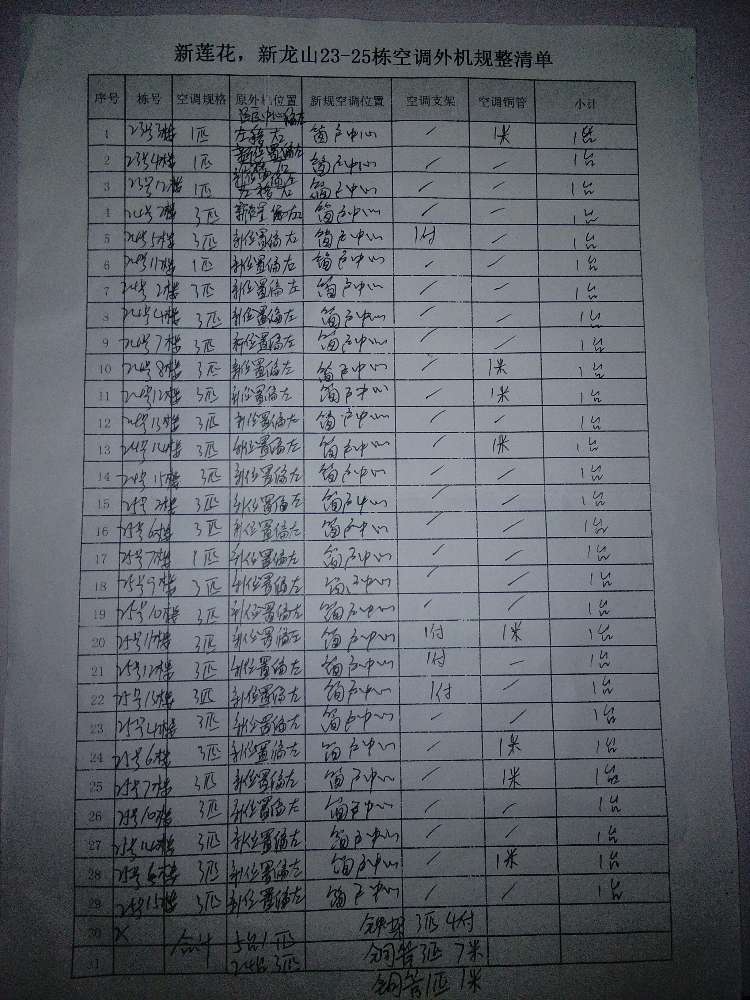 新莲花，新龙山23-25栋空调外机规整清单
序号 栋号 空调规格 原外机位置 新规空调位置 空调支架 空调铜管 小计
1 23号3楼 1匹 窗户中心 / 1米 1台
2 23号4楼 1匹 窗户中心 / / 1台
3 23号12楼 1匹 窗户中心 / / 1台
4 24号2楼 3匹 新位置偏左 窗户中心 / / 1台
5 24号5楼 3匹 新位置偏左 窗户中心 1付 / 1台
6 24号11楼 1匹 新位置偏左 窗户中心 / / 1台
7 24号2楼 3匹 新位置偏左 窗户中心 / / 1台
8 24号4楼 3匹 新位置偏左 窗户中心 / / 1台
9 24号7楼 3匹 新位置偏左 窗户中心 / / 1台
10 24号8楼 3匹 新位置偏左 窗户中心 / 1米 1台
11 24号12楼 3匹 新位置偏左 窗户中心 / 1米 1台
12 24号13楼 3匹 新位置偏左 窗户中心 / / 1台
13 24号14楼 3匹 新位置偏左 窗户中心 / 1米 1台
14 24号15楼 3匹 新位置偏左 窗户中心 / / 1台
15 25号2楼 3匹 新位置偏左 窗户中心 / / 1台
16 25号6楼 3匹 新位置偏左 窗户中心 / / 1台
17 25号7楼 1匹 新位置偏左 窗户中心 / / 1台
18 25号9楼 3匹 新位置偏左 窗户中心 / / 1台
19 25号10楼 3匹 新位置偏左 窗户中心 / / 1台
20 25号11楼 3匹 新位置偏左 窗户中心 1付 1米 1台
21 25号12楼 3匹 新位置偏左 窗户中心 1付 / 1台
22 25号13楼 3匹 新位置偏左 窗户中心 1付 / 1台
23 25号4楼 3匹 新位置偏左 窗户中心 / / 1台
24 25号6楼 3匹 新位置偏左 窗户中心 / 1米 1台
25 25号7楼 3匹 新位置偏左 窗户中心 / 1米 1台
26 25号10楼 3匹 新位置偏左 窗户中心 / / 1台
27 25号14楼 3匹 新位置偏左 窗户中心 / / 1台
28 25号 3匹 新位置偏左 窗户中心 / 1米 1台
29 25号15楼 3匹 新位置偏左 窗户中心 / / 1台
30 X 合计 5台1匹 3匹 4付
31 24台3匹 铜管3匹 7米
铜管1匹 1米